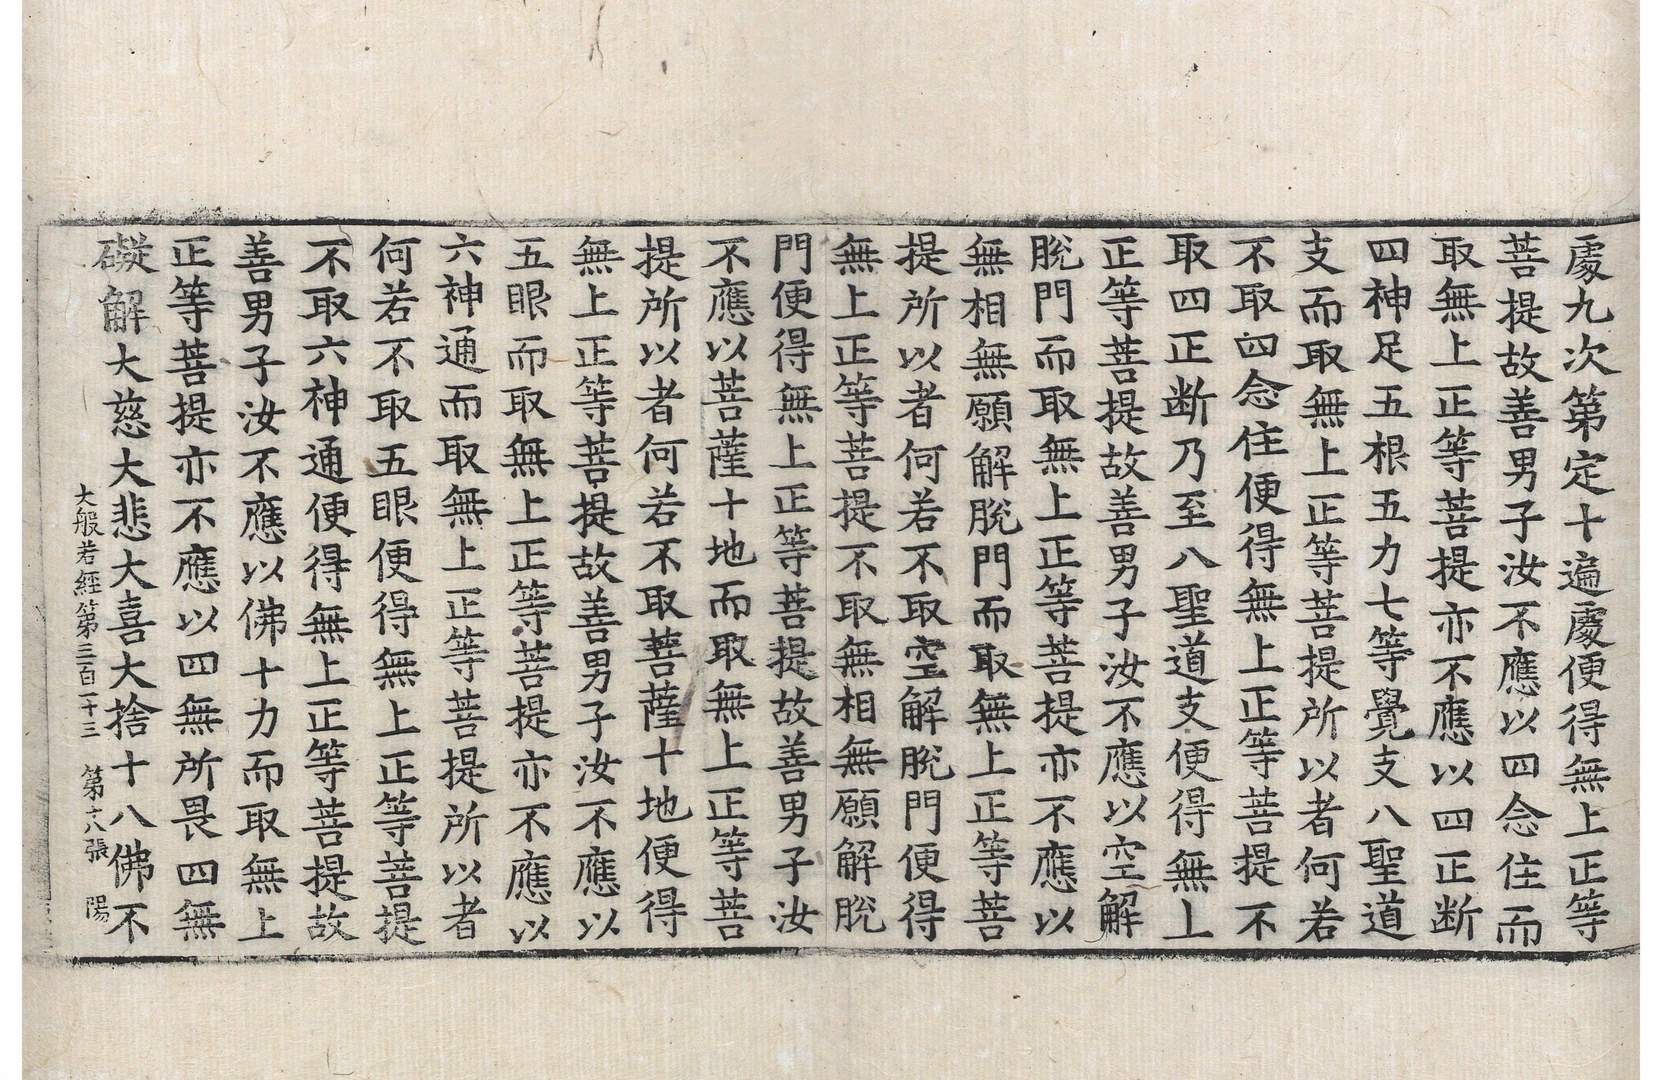 處九次第定十遍處便得無上正等
菩提故善男子汝不應以四念住而
取無上正等菩提亦不應以四正断
四神足五根五力七等覺支八聖道
支而取無上正等菩提所以者何若
不取四念住便得無上正等菩提不
取四正断乃至八聖道支便得無上
正等菩提故善男子汝不應以空解
脫門而取無上正等菩提亦不應以
無相無願解脫門而取無上正等菩
提所以者何若不取空解脫門便得
無上正等菩提不取無相無願解脫
門便得無上正等菩提故善男子汝
不應以菩薩十地而取無上正等菩
提所以者何若不取菩薩十地便得
無上正等菩提故善男子汝不應以
五眼而取無上正等菩提亦不應以
六神通而取無上正等菩提所以者
何若不取五眼便得無上正等菩提
不取六神通便得無上正等菩提故
善男子汝不應以佛十力而取無上
正等菩提亦不應以四無所畏四無
礙解大慈大悲大喜大捨十八佛不
大般若經第三百二十三 第十八張 陽